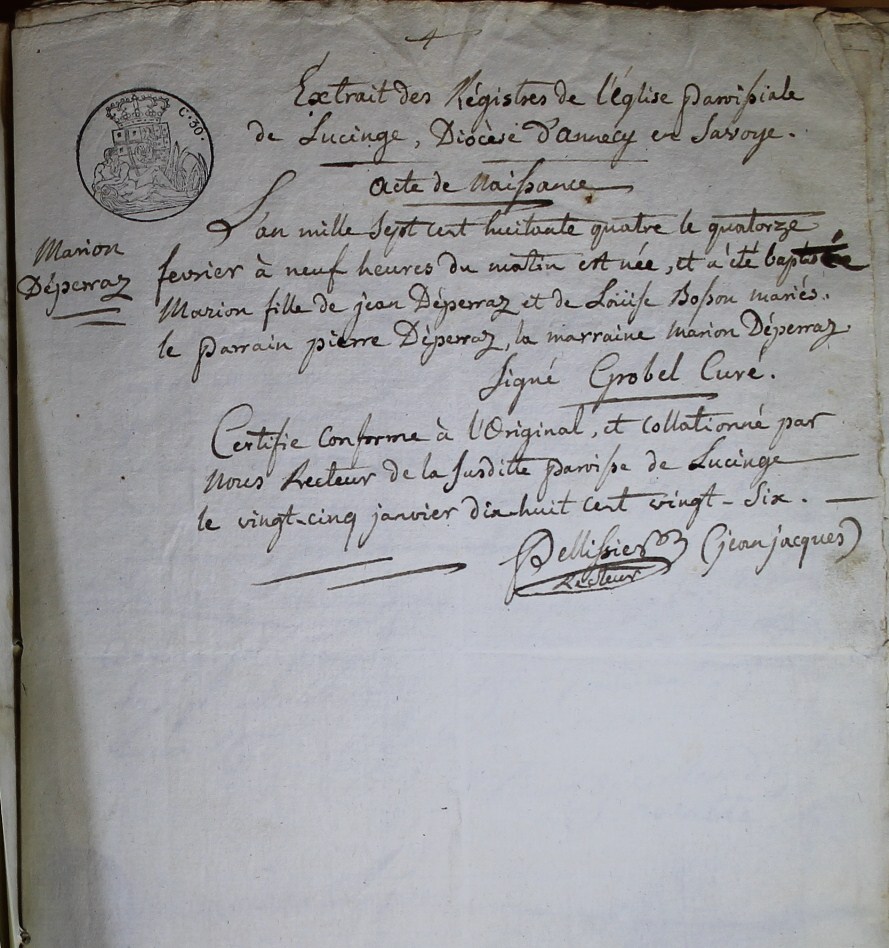 4
C. 30.
Extrait des Régistres de l'église paroissiale
de Lucinge, Diocèse d'annecy en Savoye.
acte de Naissance
L'an mille Sept cent huitante quatre le quatorze
fevrier à neuf heures du matin est née, et a été baptisée
Marion fille de jean Déperraz et de Loüise Bosson mariés.
le parrain pierre Déperraz, la marraine Marion Déperraz
Signé Grobel Curé.
Marion
Déperraz
Certifie conforme à l'Original, et collationné par
Nous Recteur de la susditte paroisse de Lucinge
le vingt-cinq janvier dix-huit cent vingt-Six.
Pellissier (jean jacques)
Recteur